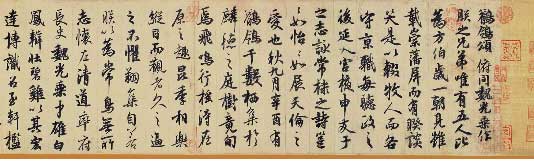 鶺鴒頌 俯同魏光乘作
朕之兄弟唯有五人比
為方伯歲一朝見雖
載崇藩屏而有睽談
笑是以輟牧人而各
守京職每聽政之
後延入宮掖申友于
之志詠棠棣之詩邕
邕如怡怡如展天倫之
愛也秋九月辛酉有
鶺鴒千數栖集於
麟德之庭樹竟旬
焉飛鳴行搖得在
原之趣昆季相樂
縱目而觀者久之逼
之不懼翔集自若
朕以為常鳥無所
志懷左清道率府
長史魏光乘才雄白
鳳辯壯碧雞以其宏
達博識召至軒楹